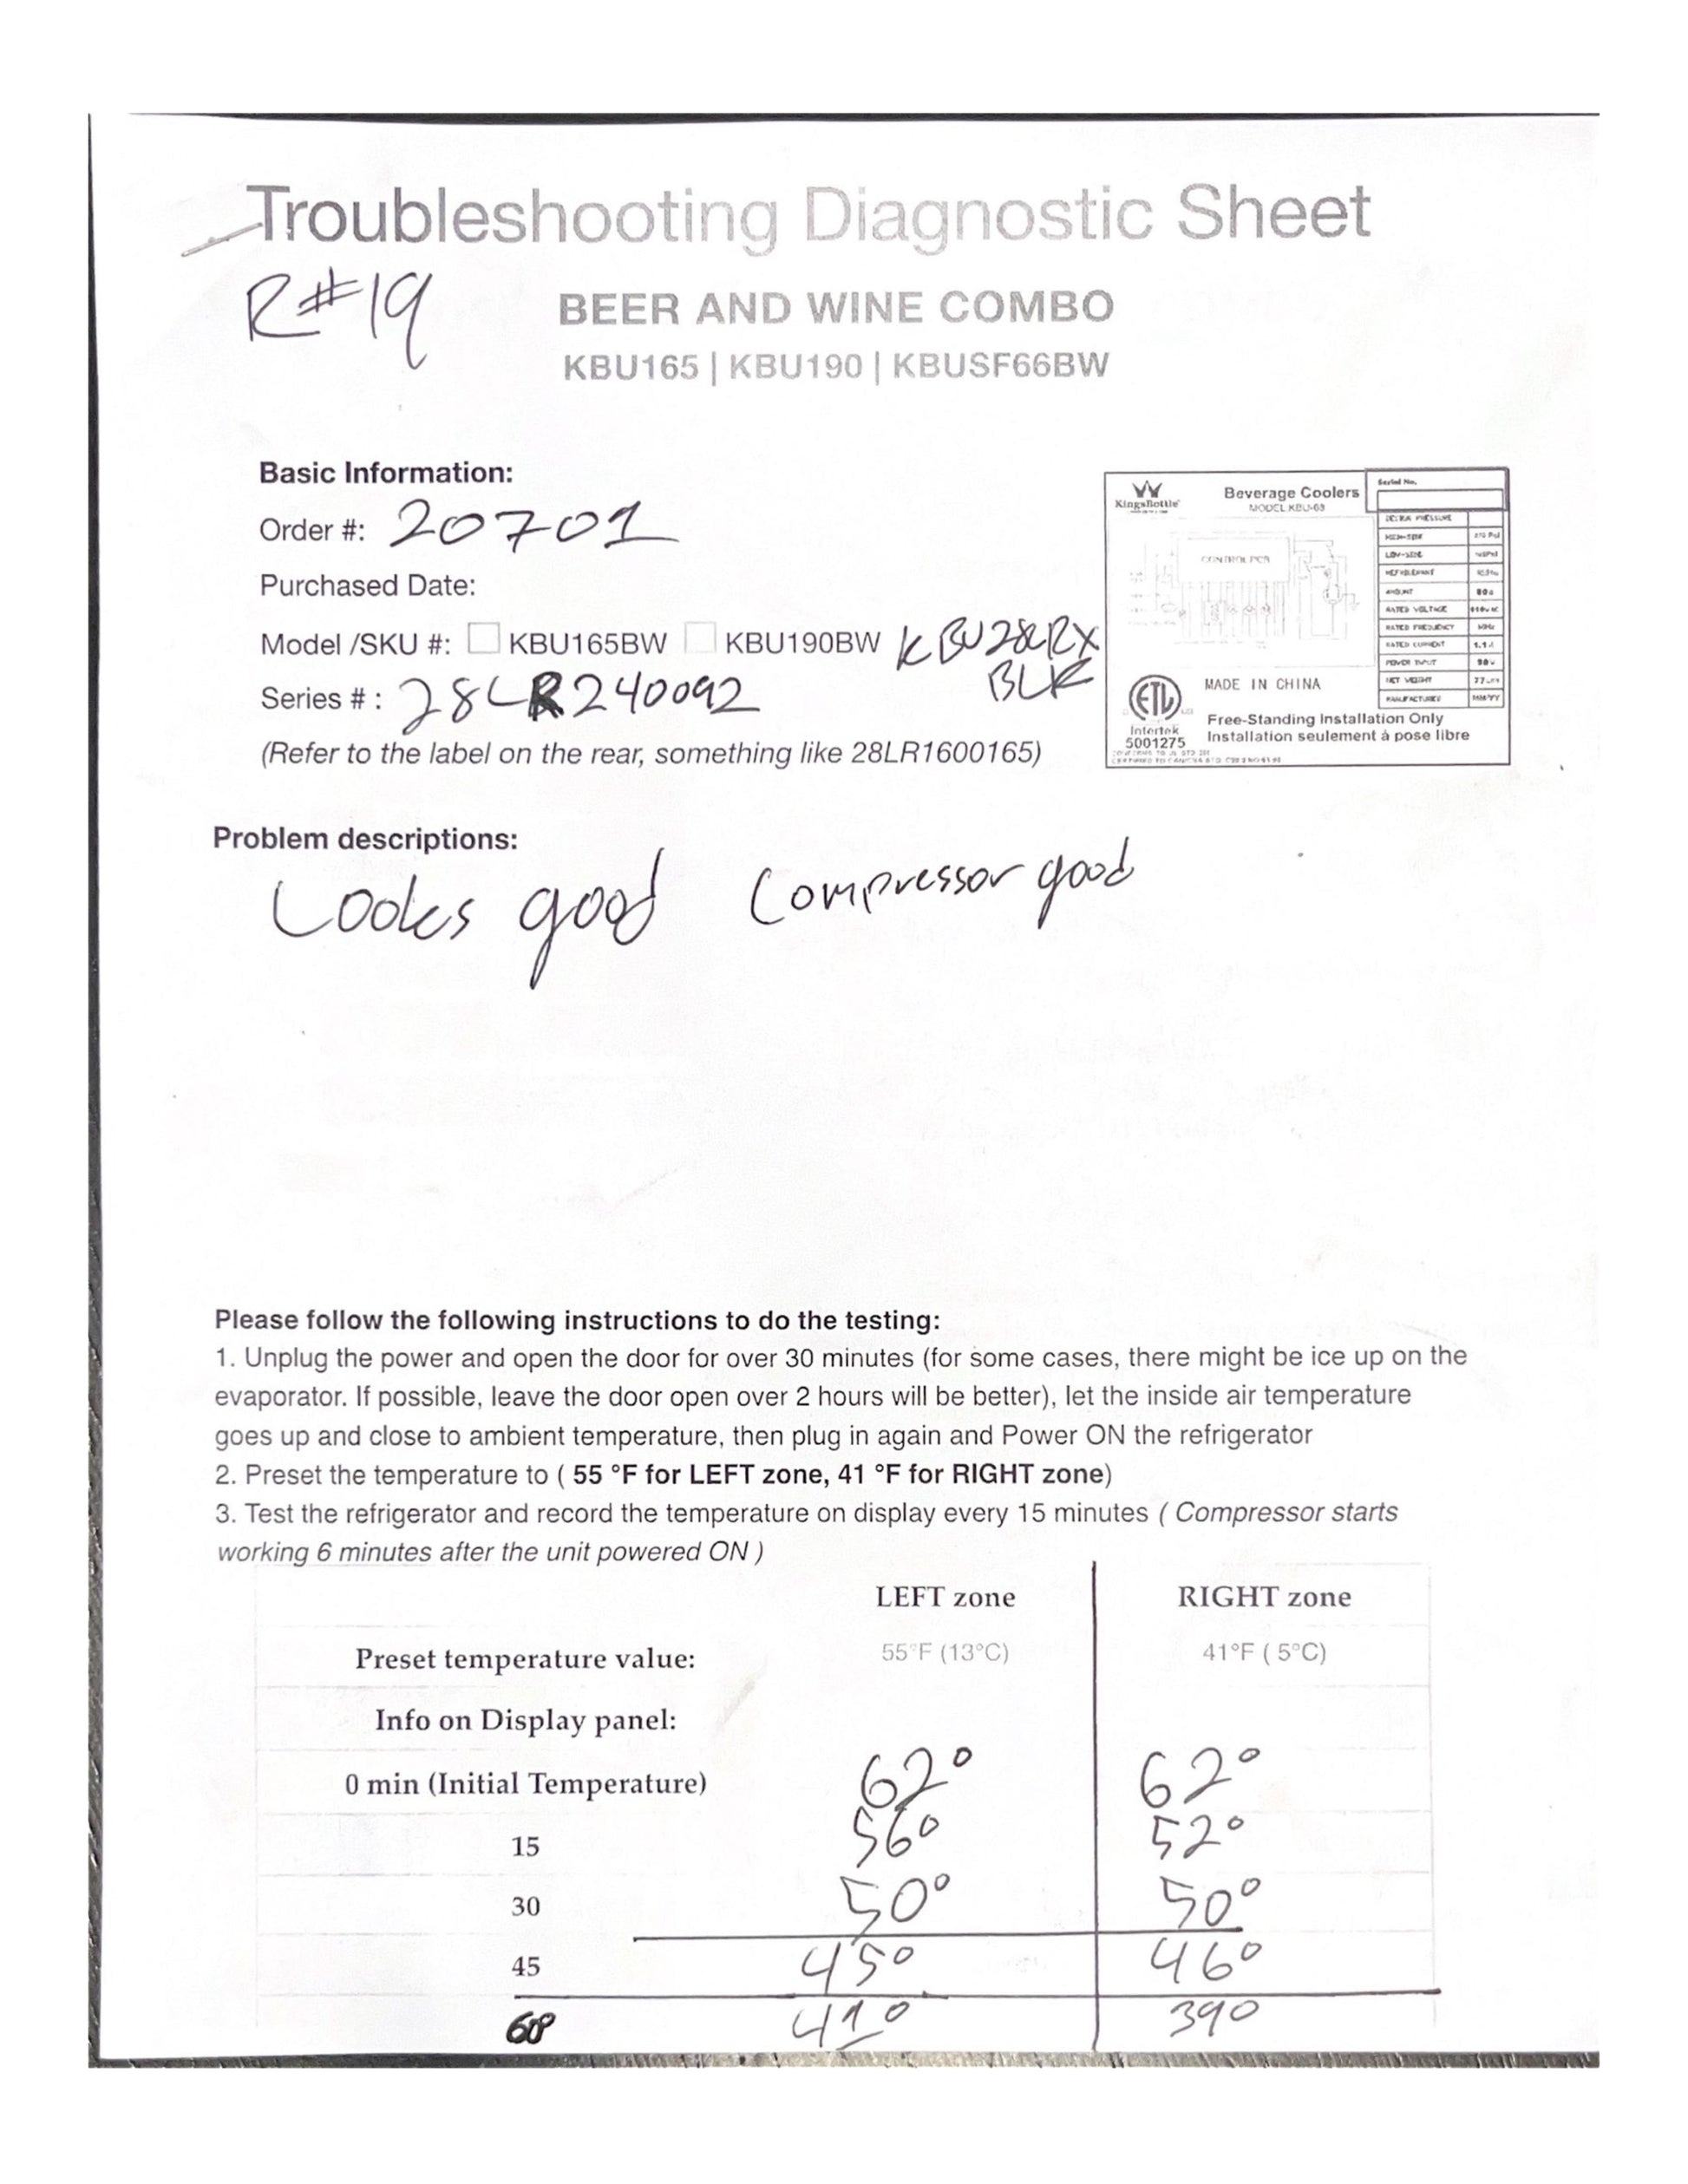 Troubleshooting Diagnostic Sheet
R#19
BEER AND WINE COMBO
KBU165 | KBU190 | KBUSF66BW
Basic Information:
Order #: 20701
Purchased Date:
Model /SKU #: KBU165BW KBU190BW KBU28LRX
BLK
Series # : 28LR240092
(Refer to the label on the rear, something like 28LR1600165)
KingsBottle
Beverage Coolers
MODEL:KBU-63
Serial No.
CONTROL PCB
HIGH-SIDE
LOW-SIDE
REFRIGERANT
AMOUNT 80g
RATED VOLTAGE
RATED FREQUENCY 60Hz
RATED CURRENT 1.1A
POWER INPUT
NET WEIGHT
MANUFACTURED
ETL
Intertek
5001275
MADE IN CHINA
Free-Standing Installation Only
Installation seulement à pose libre
Problem descriptions:
Looks good Compressor good
Please follow the following instructions to do the testing:
1. Unplug the power and open the door for over 30 minutes (for some cases, there might be ice up on the
evaporator. If possible, leave the door open over 2 hours will be better), let the inside air temperature
goes up and close to ambient temperature, then plug in again and Power ON the refrigerator
2. Preset the temperature to ( 55 °F for LEFT zone, 41 °F for RIGHT zone)
3. Test the refrigerator and record the temperature on display every 15 minutes ( Compressor starts
working 6 minutes after the unit powered ON )
LEFT zone RIGHT zone
Preset temperature value: 55°F (13°C) 41°F ( 5°C)
Info on Display panel:
0 min (Initial Temperature) 62° 62°
15 56° 52°
30 50° 50°
45 45° 46°
60° 41° 39°